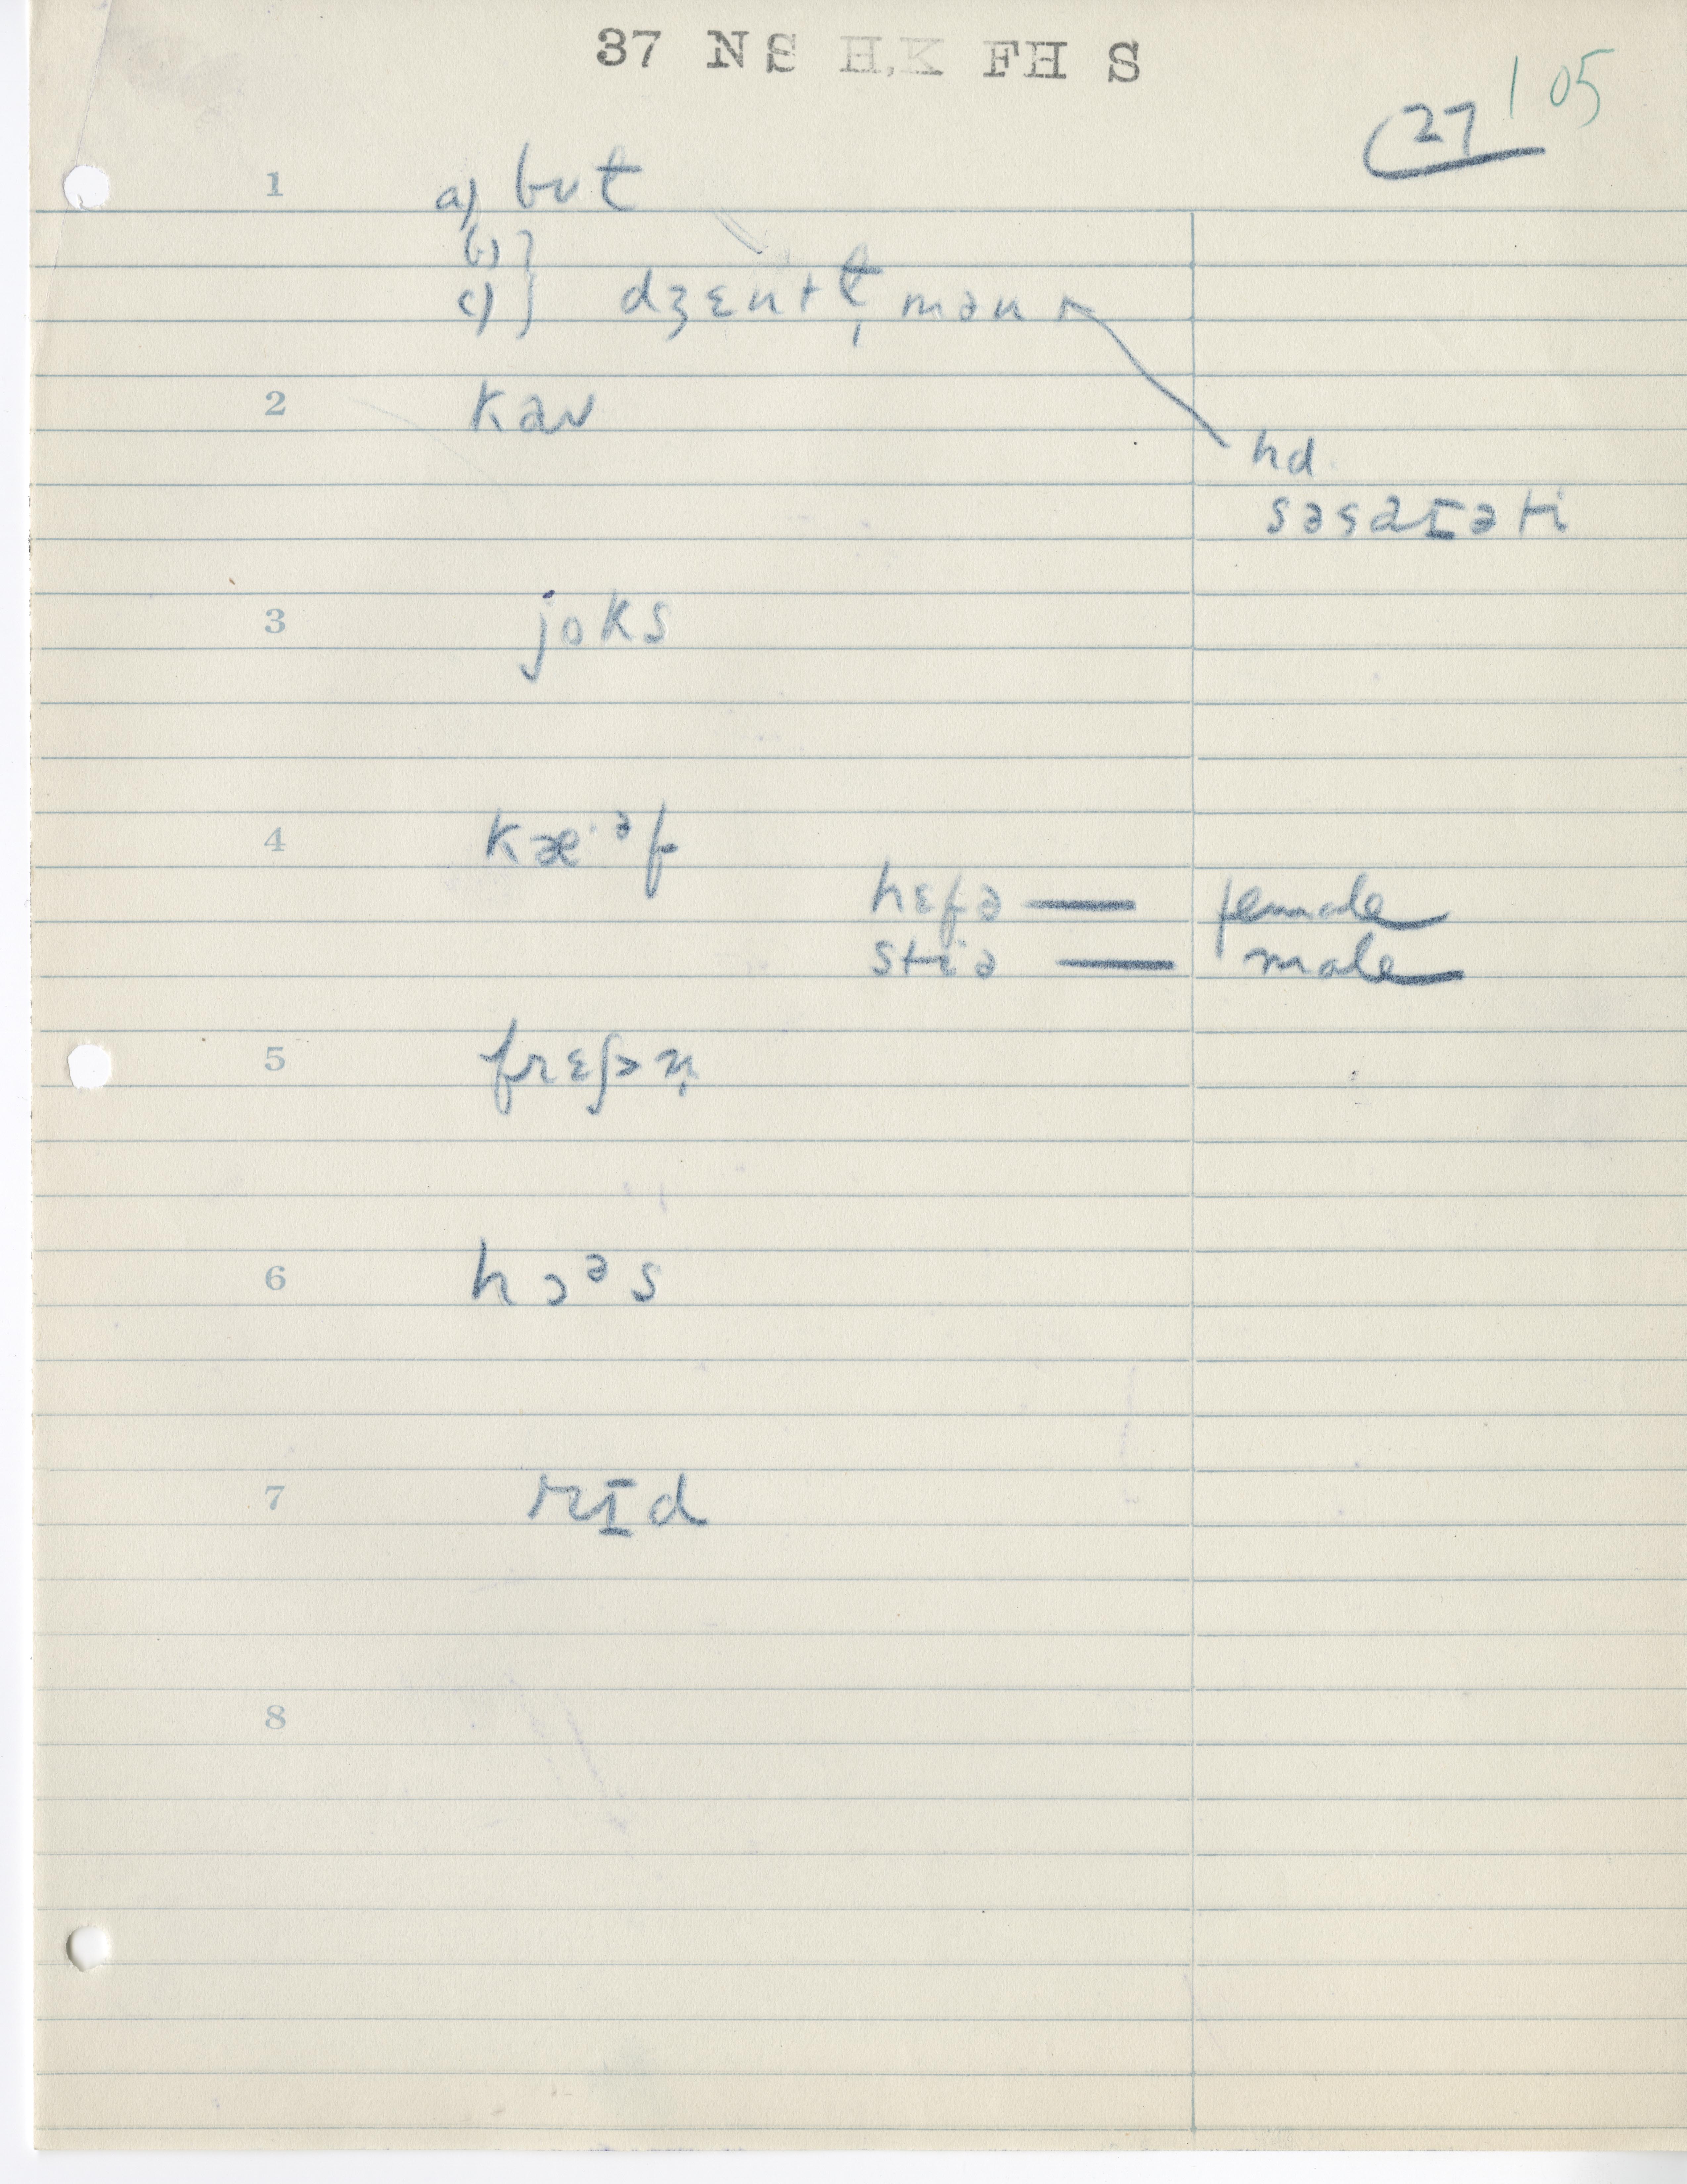 37 NS H.K FH S
105
27
1 a) bʊɫ
b) }
c) } dʒɛntɫ̩mən
2 kaʊ
hd.
səsaɪəti
3 joks
4 kæ·ᵊf
hɛfə — female
stiə — male
5 frɛʃən̩
6 hɔᵊs
7 rɪd
8